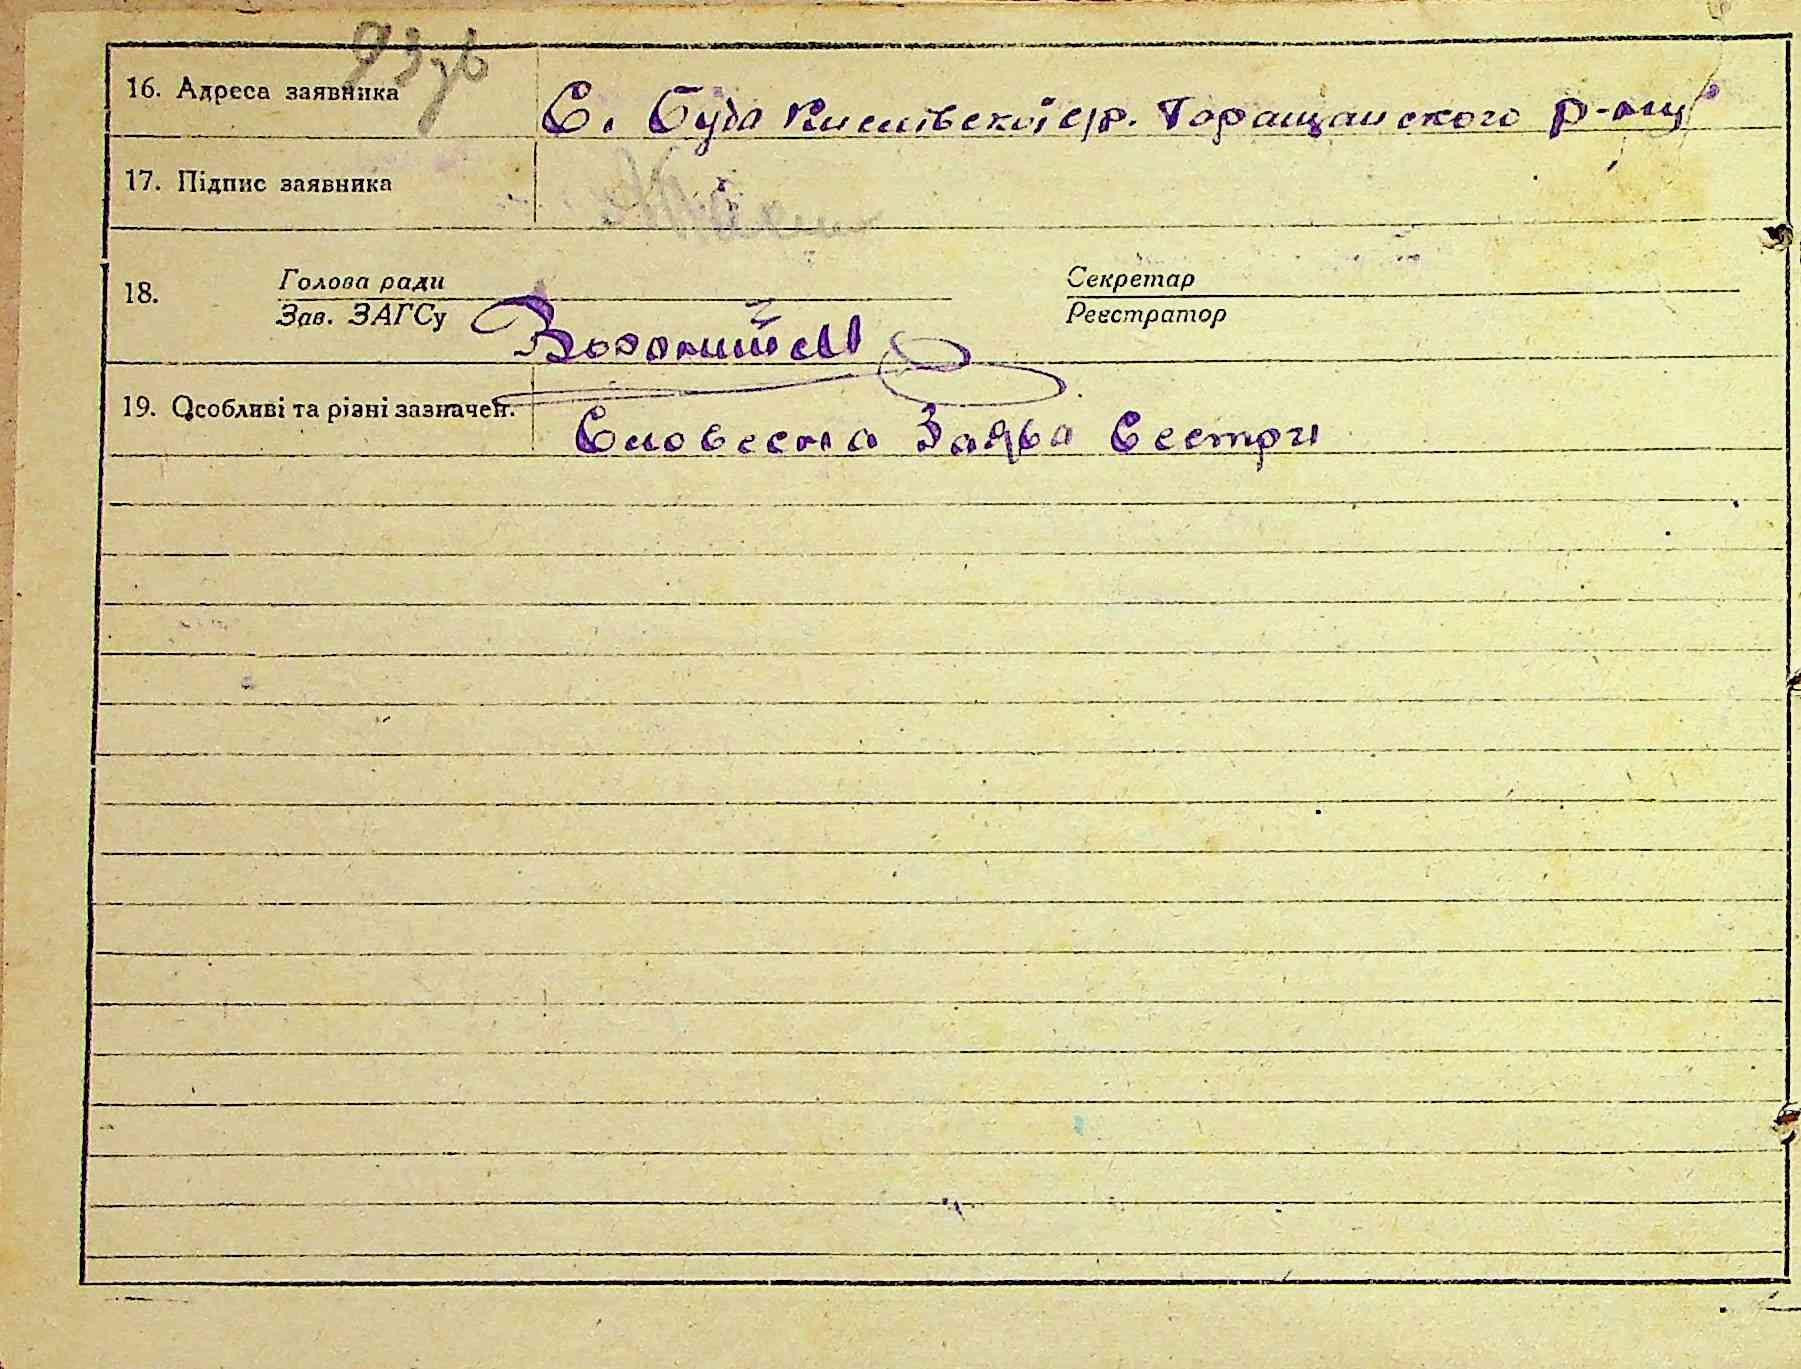 93 зв
16. Адреса заявника С. Буда Кислівскої с/р. Таращанского р-ну
17. Підпис заявника
18. Голова ради Секретар
Зав. ЗАГСу Реєстратор
19. Особливі та різні зазначен. Словесна Заява Сестри